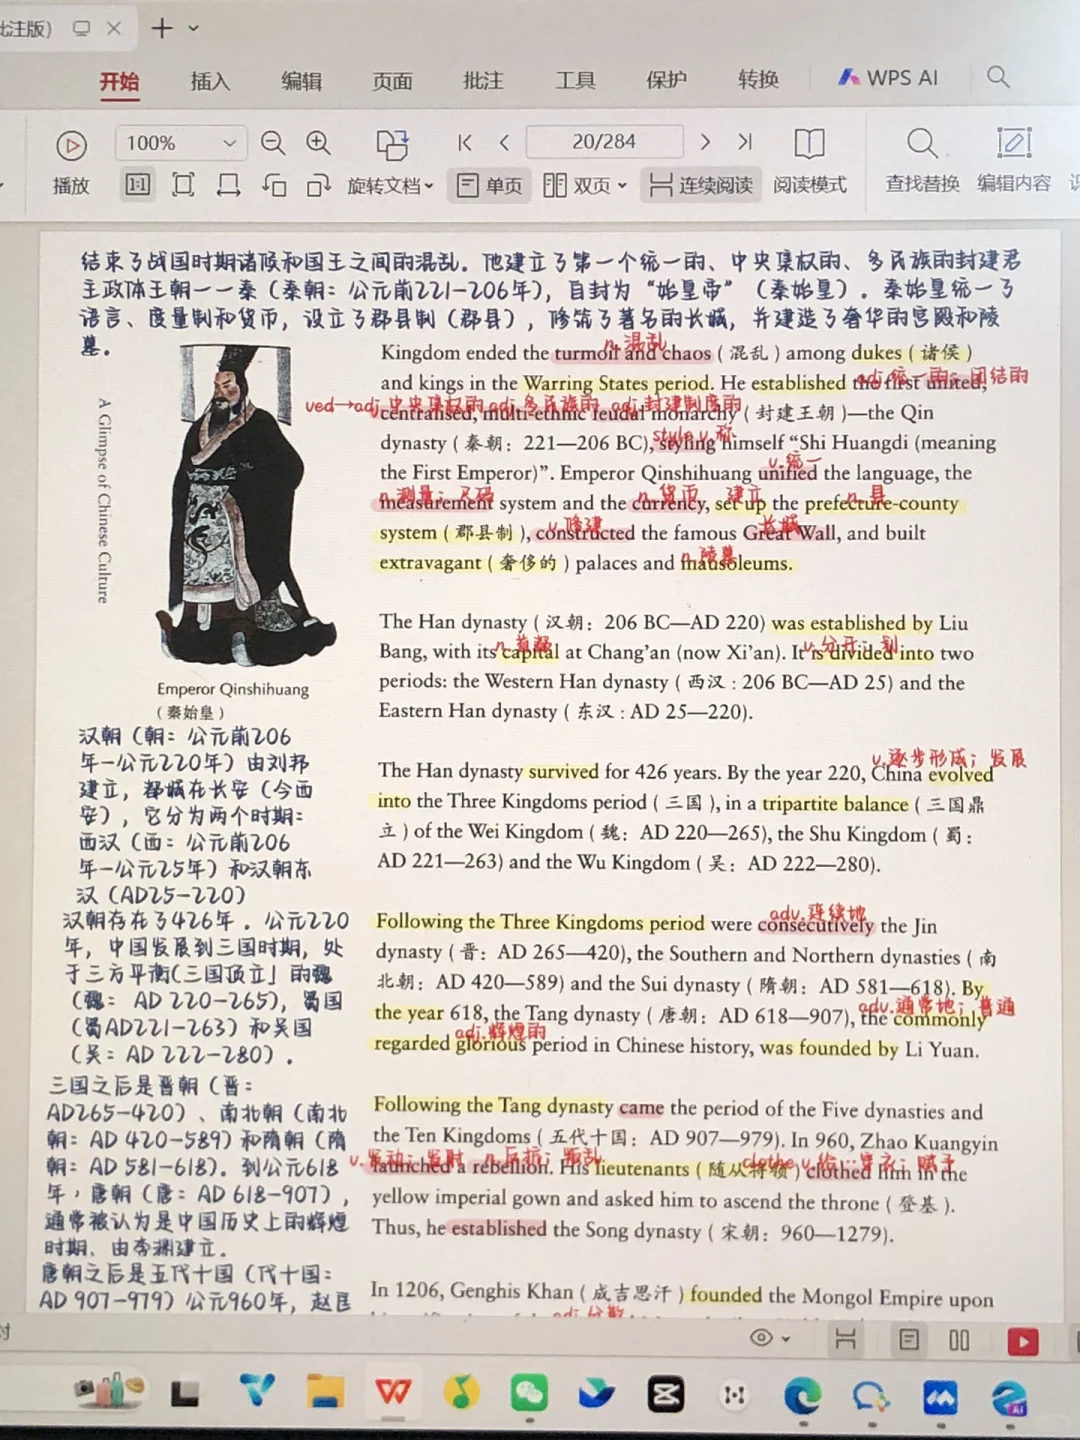 批注版)
开始 插入 编辑 页面 批注 工具 保护 转换 WPS AI
100% 20/284
播放 1:1 旋转文档 单页 双页 连续阅读 阅读模式 查找替换 编辑内容
结束了战国时期诸候和国王之间的混乱。他建立了第一个统一的、中央集权的、多民族的封建君
主政体王朝一一秦（秦朝：公元前221-206年），自封为“始皇帝”（秦始皇）。秦始皇统一了
语言、度量制和货币，设立了郡县制（郡县），修筑了著名的长城，并建造了奢华的宫殿和陵
墓。
n.混乱
Kingdom ended the turmoil and chaos ( 混乱 ) among dukes ( 诸侯 )
adj.统一的；团结的
and kings in the Warring States period. He established the first united,
ved→adj.中央集权的 adj.多民族的 adj.封建制度的
centralised, multi-ethnic feudal monarchy ( 封建王朝 )—the Qin
style v.称
dynasty ( 秦朝：221—206 BC), styling himself “Shi Huangdi (meaning
v.统一
the First Emperor)”. Emperor Qinshihuang unified the language, the
n.测量；尺码 n.货币 建立 n.县
measurement system and the currency, set up the prefecture-county
v.修建 长城
system ( 郡县制 ), constructed the famous Great Wall, and built
n.陵墓
extravagant ( 奢侈的 ) palaces and mausoleums.
A Glimpse of Chinese Culture
Emperor Qinshihuang
( 秦始皇 )
The Han dynasty ( 汉朝：206 BC—AD 220) was established by Liu
n.首都 v.分开；划
Bang, with its capital at Chang’an (now Xi’an). It is divided into two
periods: the Western Han dynasty ( 西汉 : 206 BC—AD 25) and the
Eastern Han dynasty ( 东汉 : AD 25—220).
v.逐步形成；发展
The Han dynasty survived for 426 years. By the year 220, China evolved
into the Three Kingdoms period ( 三国 ), in a tripartite balance ( 三国鼎
立 ) of the Wei Kingdom ( 魏：AD 220—265), the Shu Kingdom ( 蜀：
AD 221—263) and the Wu Kingdom ( 吴：AD 222—280).
adv.连续地
Following the Three Kingdoms period were consecutively the Jin
dynasty ( 晋：AD 265—420), the Southern and Northern dynasties ( 南
北朝：AD 420—589) and the Sui dynasty ( 隋朝：AD 581—618). By
adv.通常地；普通
the year 618, the Tang dynasty ( 唐朝：AD 618—907), the commonly
adj.辉煌的
regarded glorious period in Chinese history, was founded by Li Yuan.
Following the Tang dynasty came the period of the Five dynasties and
the Ten Kingdoms ( 五代十国：AD 907—979). In 960, Zhao Kuangyin
v.发动；发射 n.反抗；叛乱 clothe v.给…穿衣；赋予
launched a rebellion. His lieutenants ( 随从将领 ) clothed him in the
yellow imperial gown and asked him to ascend the throne ( 登基 ).
Thus, he established the Song dynasty ( 宋朝：960—1279).
In 1206, Genghis Khan ( 成吉思汗 ) founded the Mongol Empire upon
adj.分散
汉朝（朝：公元前206
年一公元220年）由刘邦
建立，都城在长安（今西
安），它分为两个时期：
西汉（西：公元前206
年一公元25年）和汉朝东
汉（AD25-220）
汉朝存在了426年。公元220
年，中国发展到三国时期，处
于三方平衡(三国顶立」的魏
（魏：AD 220-265），蜀国
（蜀AD221-263）和吴国
（吴：AD 222-280）.
三国之后是晋朝（晋：
AD265-420）、南北朝（南北
朝：AD 420-589）和隋朝（隋
朝：AD 581-618）。到公元618
年，唐朝（唐：AD 618-907），
通常被认为是中国历史上的辉煌
时期、由李渊建立。
唐朝之后是五代十国（代十国：
AD 907-979）公元960年，赵匡